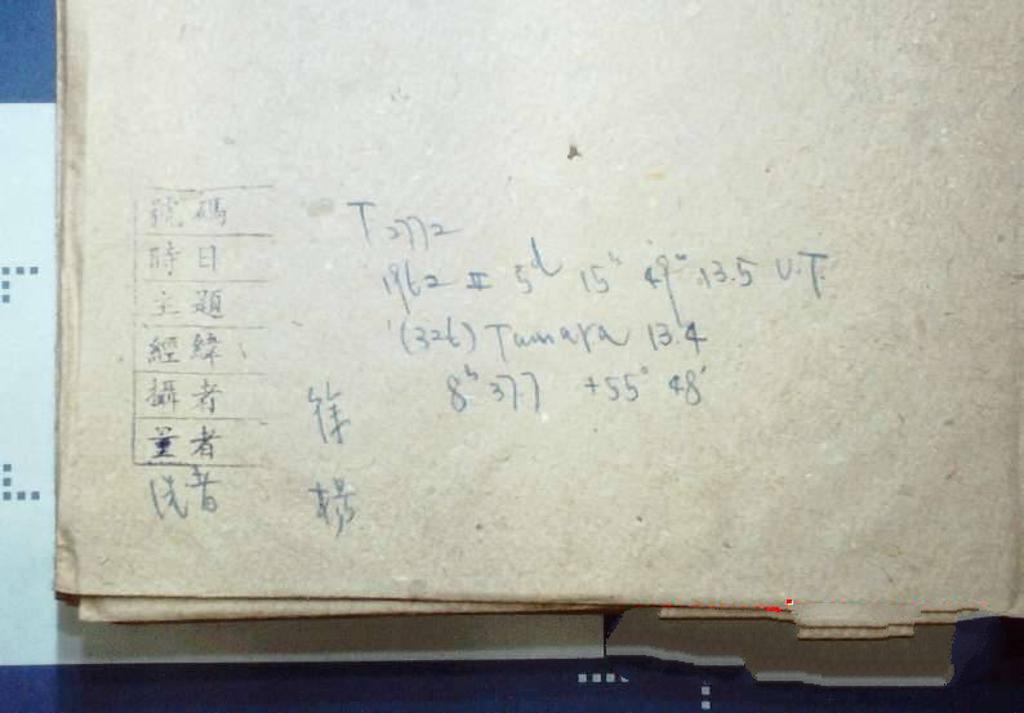 號碼 T 2772
時日 1962 II 5d 15h 49m 13.5 U.T.
主題 (326) Tamara 13.4
經緯 8h 377 +55° 48'
攝者 徐
量者
洗者 楊